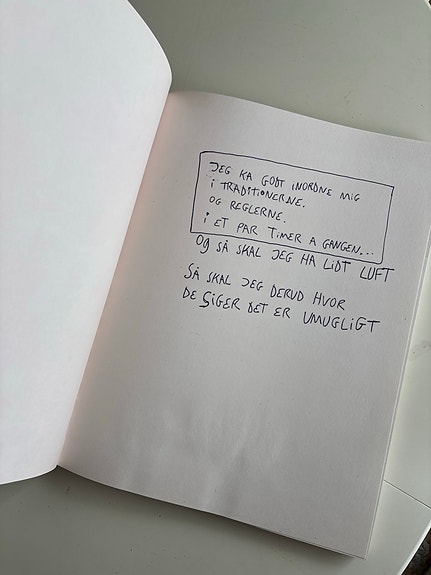 JEG KA GODT INORDNE MIG
i TRADITIONERNE.
OG REGLERNE.
i ET PAR TIMER A GANGEN...
Og SÅ SKAL JEG HA LIDT LUFT
SÅ SKAL JEG DERUD HVOR
DE SIGER DET ER UMULIGT